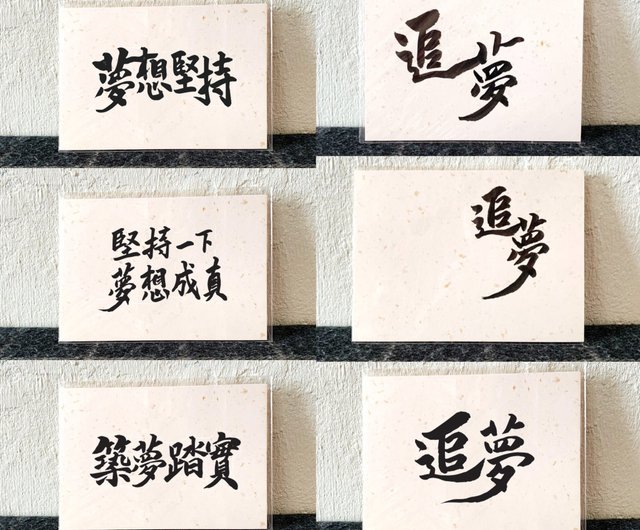 夢想堅持
追夢
堅持一下
夢想成真
追夢
築夢踏實
追夢